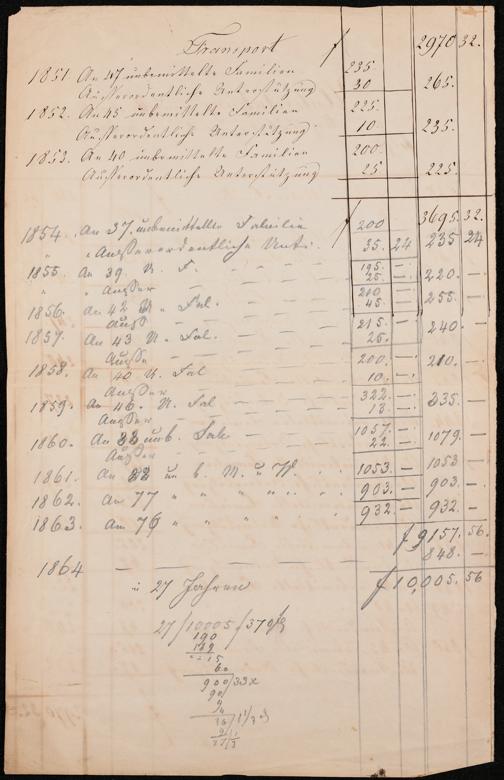 Transport f 2970 32.
1851 An 47 unbemittelte Familien 235.
Ausserordentliche Unterstützung 30 265.
1852. An 45 unbemittelte Familien 225.
Ausserordentliche Unterstützung 10 235.
1853. An 40 unbemittelte Familien 200.
Ausserordentliche Unterstützung 25 225.
f 3695. 32.
1854. An 37. unbemittelte Familie 200
" " Ausserordentliche Unte. 35. 24 235 24
1855. An 39. U. F. — — — — 195.
" " Ausser — — — — 25. — 220. —
1856. An 42 U. Fal. — — — 210
Auss — — — — 45. — 255. —
1857. An 43 U. Fal. — — — 215. —
Ausse — — — — 25. 240. —
1858. An 40 U. Fal — — — 200. —
Ausser — — — — 10. 210. —
1859. An 46. U. Fal — — — 322. —
Ausser — — — — 13. — 335. —
1860. An unb. Fale — — — 1057. —
Ausser — — — — 22. — 1079. —
1861. An un b. M. u W. 1053. — 1053 —
1862. An 77 " " " " " 903. — 903. —
1863. An 76 " " " " 932. — 932. —
f 9157. 56.
1864 — — — — — — 848. —
in 27 Jahren f 10,005. 56
27/10005/f 370
190
189
15
60
900/33x
90